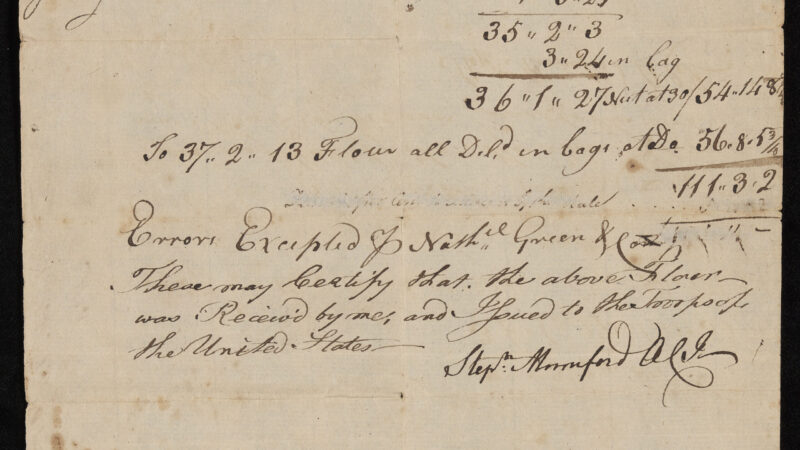 35 " 2 " 3
3 " 24 in bag
36 " 1 " 27 Neat at 30/ 54 " 14 " 8
To 37 " 2 " 13 Flour all Deld in bags at Do 56 " 8 " 5 3/4
111 " 3 " 2
Errors Excepted Nathel Green & Co
These may Certify that the above Flour
was Receiv'd by me, and Issued to the Troops of
the United States
Stepn Mumford A C I